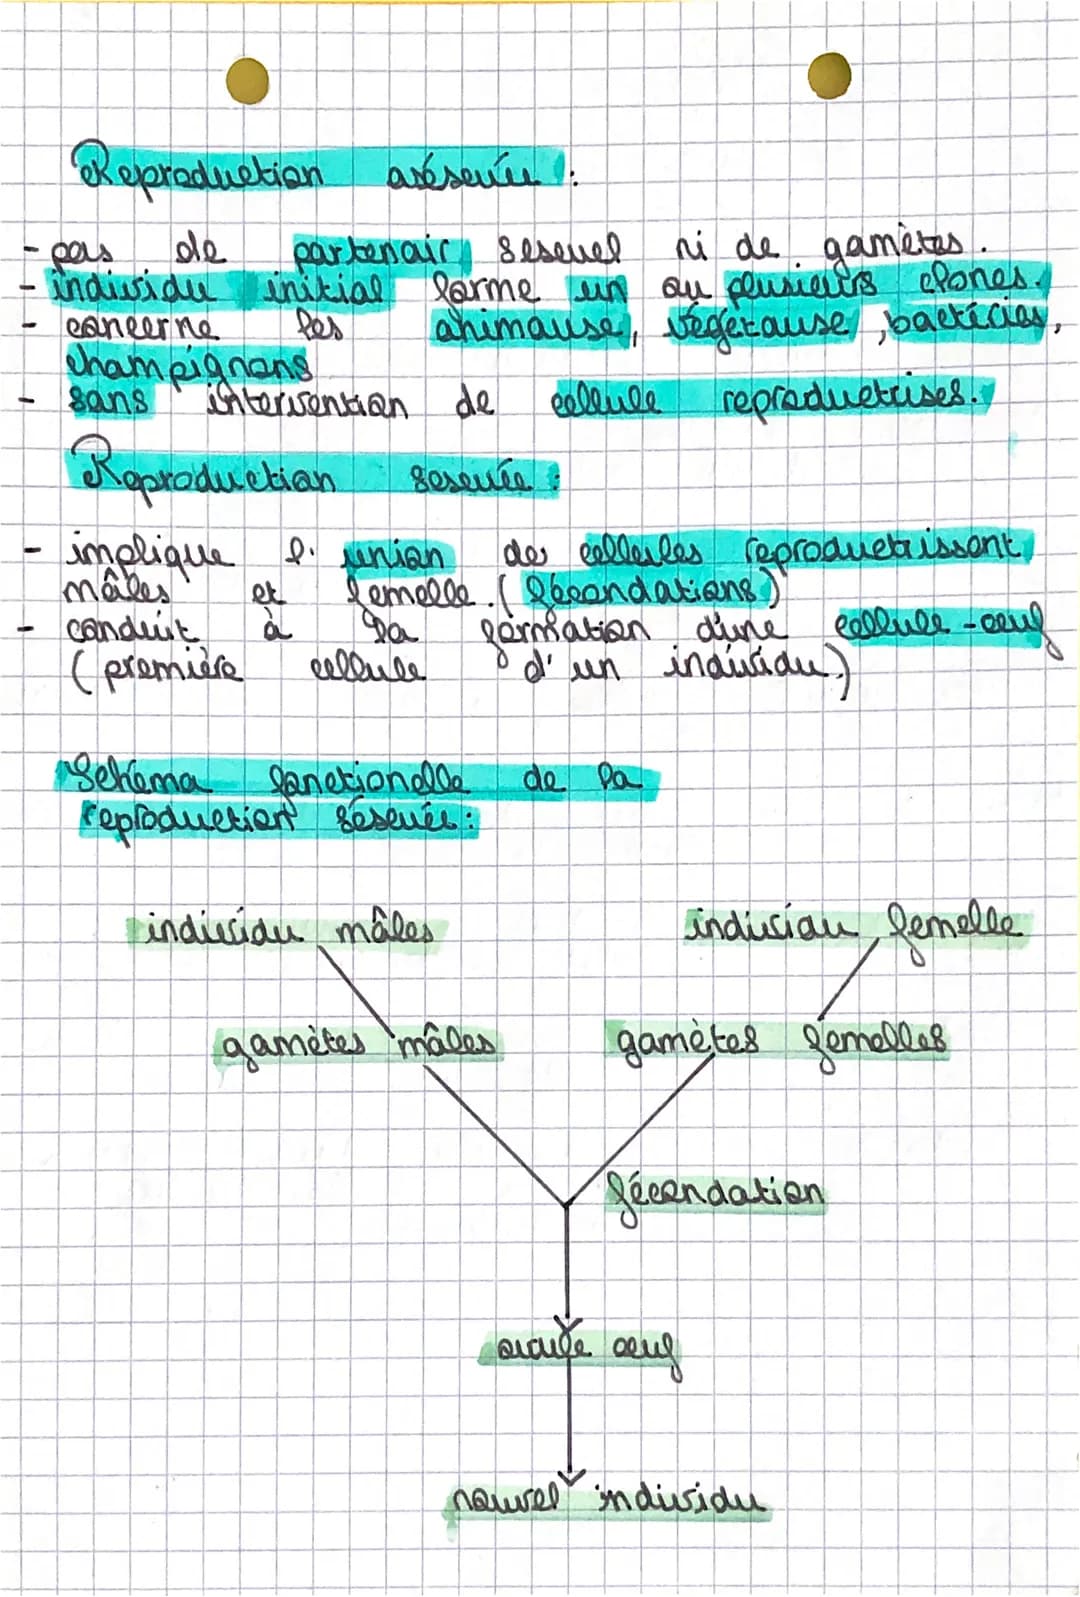 Reproduction aséxuée :
- pas de partenair sexuel ni de gamètes.
- individu initial forme un ou plusieurs clones.
- concerne les animause, végétause, bactéries,
champignons
- sans intervention de cellule reproductrises.
Reproduction sexuée :
- implique l' union des cellules reproductrissent
mâles et femelle. (fécondations)
- conduit à la formation d'une cellule-oeuf
(première cellule d'un individu.)
Schéma fonctionelle de la
reproduction séxuée :
individu mâles individu femelle
gamètes mâles gamètes femelles
fécondation
ovule oeuf
nouvel individu